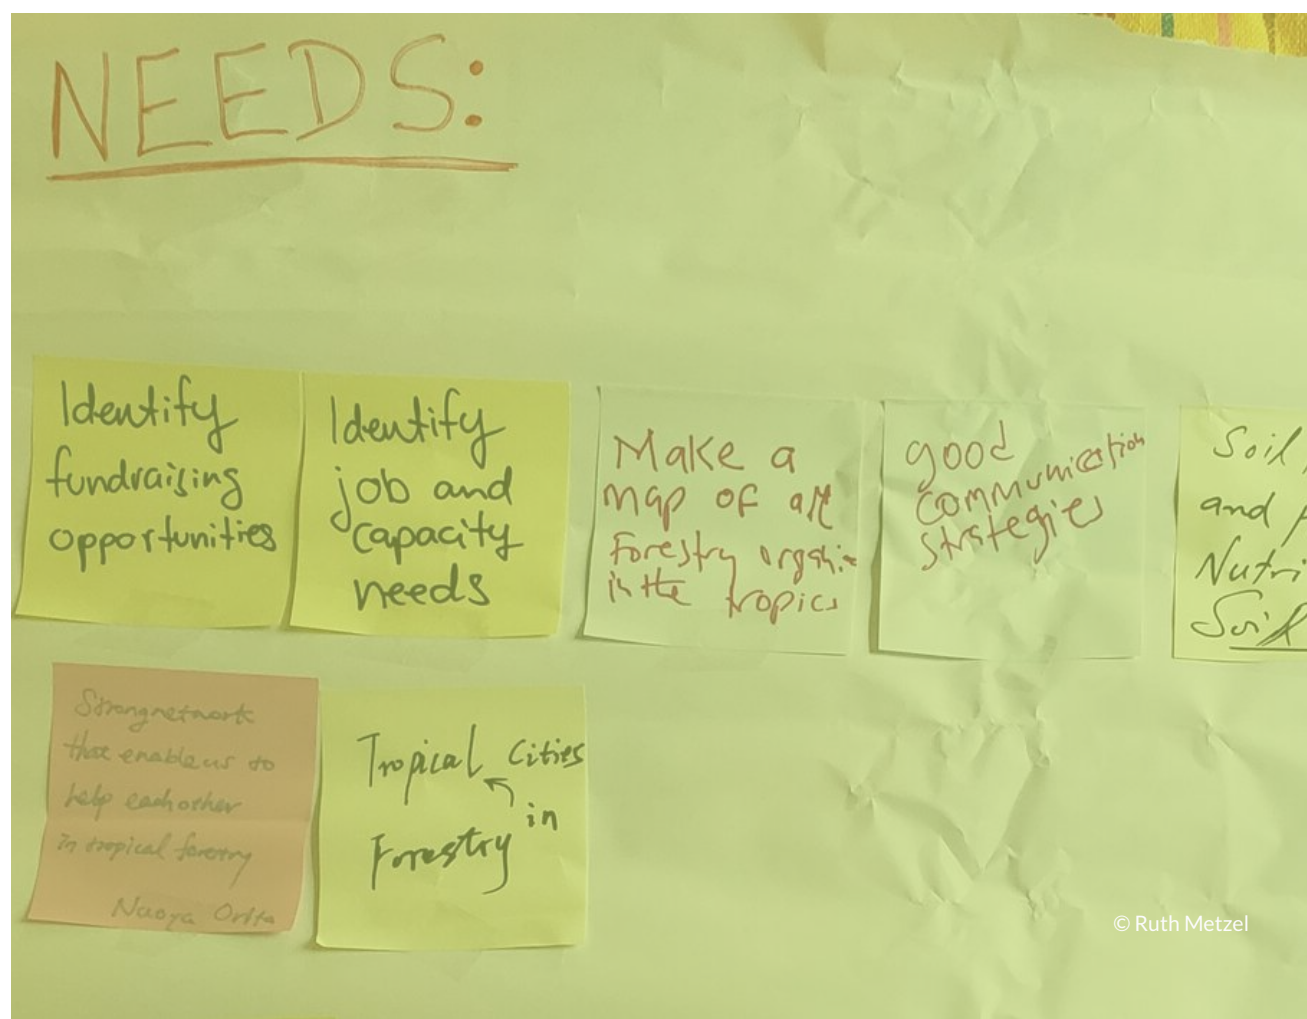 NEEDS:
Identify
fundraising
opportunities
Identify
job and
capacity
needs
Make a
map of all
Forestry
in the tropics
good
communication
strategies
Soil
and
Nutri
Soil
Strong network
that enable us to
help each other
in tropical forestry
Naoya Orita
Tropical Cities
in
Forestry
© Ruth Metzel